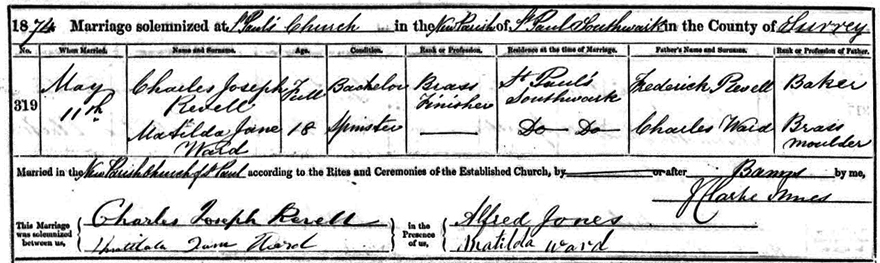 1874 Marriage solemnized at St Paul's Church in the New Parish of St Paul Southwark in the County of Surrey
No. When Married. Name and Surname. Age. Condition. Rank or Profession. Residence at the time of Marriage. Father's Name and Surname. Rank or Profession of Father.
319 May 11th Charles Joseph Revell Full Bachelor Brass Finisher St Paul's Southwark Frederick Revell Baker
Matilda Jane Ward 18 Spinster — Do Do Charles Ward Brass moulder
Married in the New Parish Church of St Paul according to the Rites and Ceremonies of the Established Church, by or after Banns by me,
J Clarke Innes
This Marriage was solemnized between us, Charles Joseph Revell in the Presence of us, Alfred Jones
Matilda Jane Ward Matilda Ward